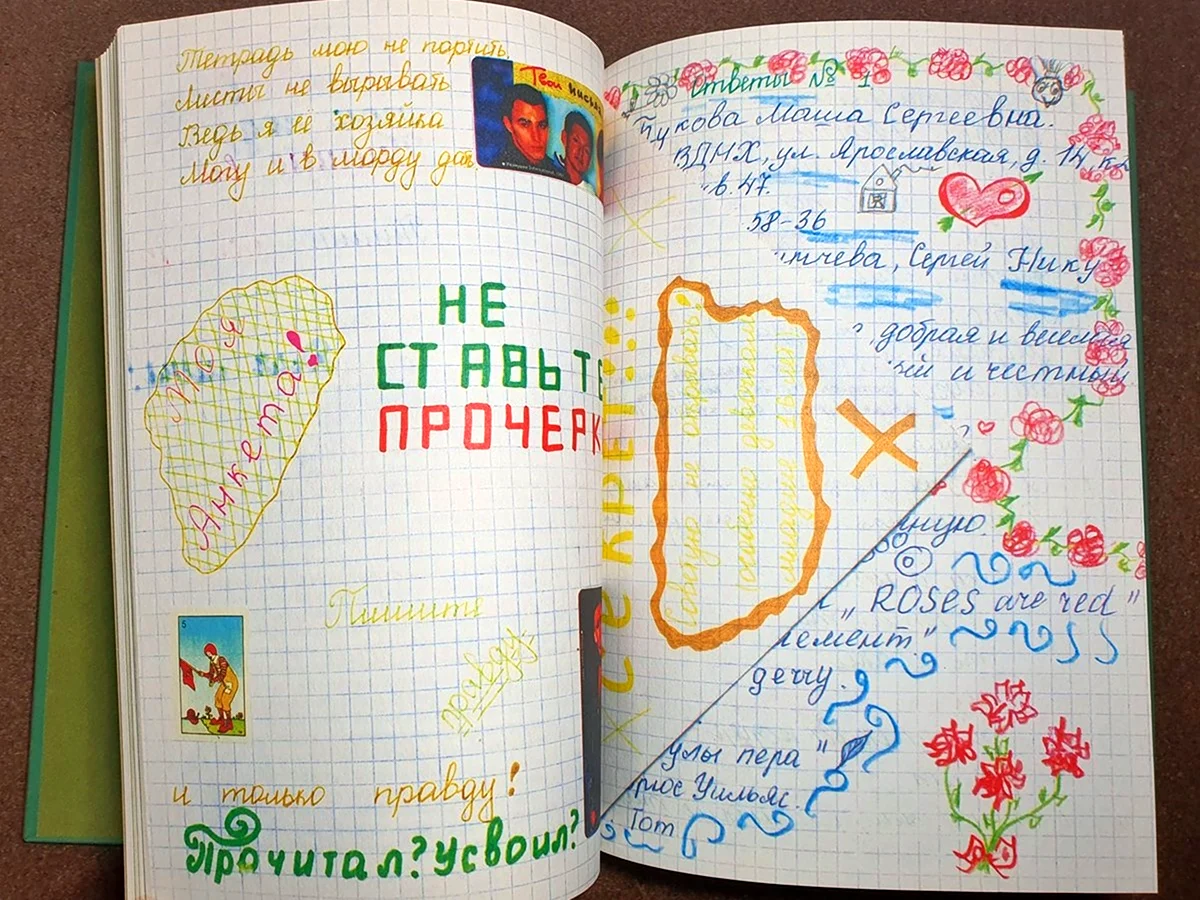 Тетрадь мою не портить
Листы не вырывать
Ведь я её хозяйка
Могу и в морду дать.
Твои
Моя
Анкета!
НЕ
СТАВЬТЕ
ПРОЧЕРК
5
Пишите
правду.
и только правду!
Прочитал? Усвоил?
Секрет:
Советую не открывать,
младше 16 лет
Ответы № 1
кова Маша Сергеевна.
ВДНХ, ул. Ярославская, д. 14, кв
в. 47.
58-36
тчева, Сергей Нику
добрая и веселая
ий и честный
нную.
„ROSES are red"
лемент."
деччу.
улы пера"
Уильяс.
Тот